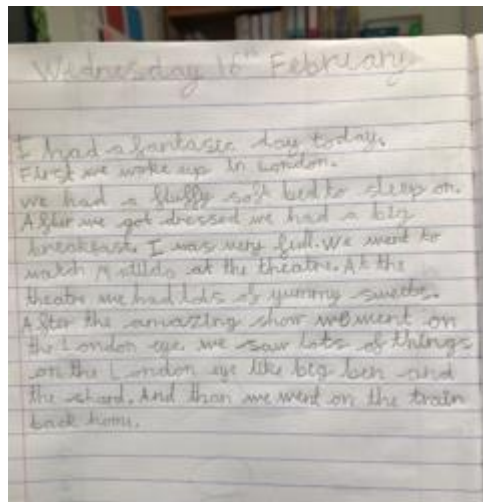 Wednesday 16th February
I had a fantasic day today.
First we woke up in London.
we had a fluffy soft bed to sleep on.
After we got dressed we had a big
breakfast. I was very full. We went to
watch Matilda at the theatre. At the
theatre we had lots of yummy sweets.
After the amazing show we went on
the London eye we saw lots of things
on the London eye like big ben and
the shard. And than we went on the train
back home.